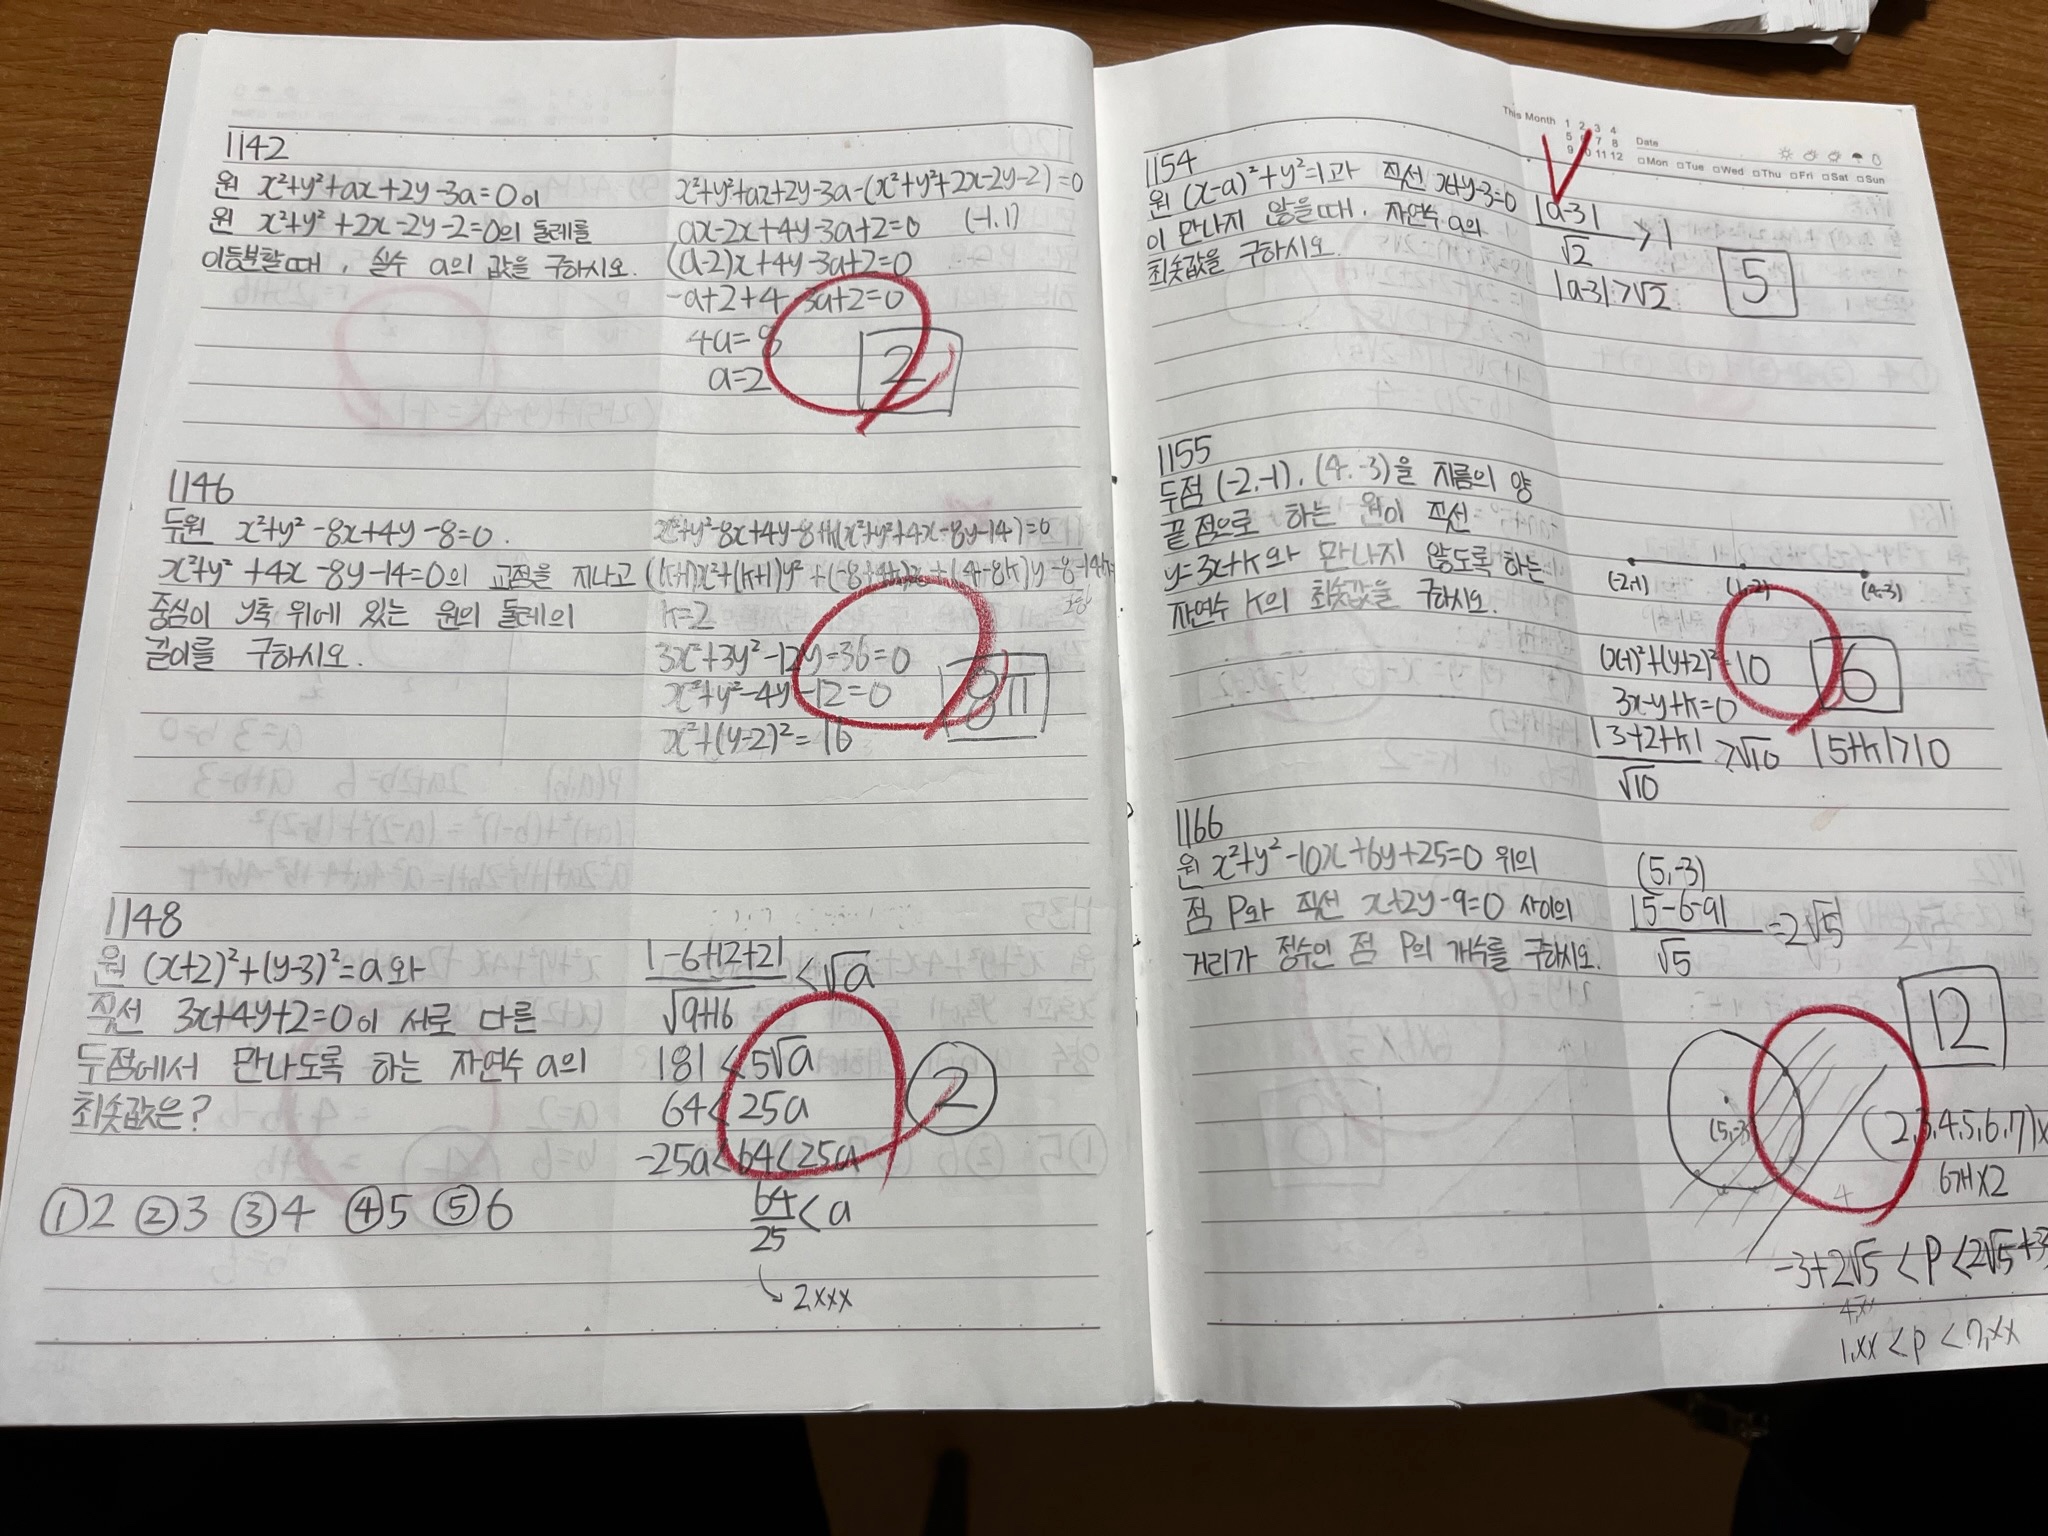 1142
원 x²+y²+ax+2y-3a=0이
원 x²+y²+2x-2y-2=0의 둘레를
이등분할때, 실수 a의 값을 구하시오.
x²+y²+ax+2y-3a-(x²+y²+2x-2y-2)=0
ax-2x+4y-3a+2=0 (-1,1)
(a-2)x+4y-3a+2=0
-a+2+4-3a+2=0
4a=8
a=2
2
1146
두원 x²+y²-8x+4y-8=0.
x²+y²+4x-8y-14=0의 교점을 지나고
중심이 y축 위에 있는 원의 둘레의
길이를 구하시오.
x²+y²-8x+4y-8+k(x²+y²+4x-8y-14)=0
(k+1)x²+(k+1)y²+(-8+4k)x+(4-8k)y-8-14k=
k=2
3x²+3y²-12y-36=0
x²+y²-4y-12=0
x²+(y-2)²=16
8π
1148
원 (x+2)²+(y-3)²=a와
직선 3x+4y+2=0이 서로 다른
두점에서 만나도록 하는 자연수 a의
최솟값은?
①2 ②3 ③4 ④5 ⑤6
|-6+12+2|/√9+16 <√a
|8|<5√a
64<25a
-25a<64<25a
64/25<a
2.xxx
②
This Month 1 2 3 4
5 6 7 8
9 10 11 12
Date
Mon Tue Wed Thu Fri Sat Sun
1154
원 (x-a)²+y²=1과 직선 x+y-3=0
이 만나지 않을때, 자연수 a의
최솟값을 구하시오.
|a-3|/√2 >1
|a-3|>√2
5
1155
두점 (-2,-1), (4,-3)을 지름의 양
끝점으로 하는 원이 직선
y=3x+k와 만나지 않도록 하는
자연수 k의 최솟값을 구하시오.
(-2,-1) (1,-2) (4,-3)
(x-1)²+(y+2)²=10
3x-y+k=0
|3+2+k|/√10 >√10 |5+k|>10
6
1166
원 x²+y²-10x+6y+25=0 위의
점 P와 직선 x+2y-9=0 사이의
거리가 정수인 점 P의 개수를 구하시오.
(5,-3)
|5-6-9|/√5 =2√5
12
(5,-3)
(2,3,4,5,6,7)x
6개x2
4
-3+2√5<P<2√5+3
4.xx
1.xx<p<7.xx